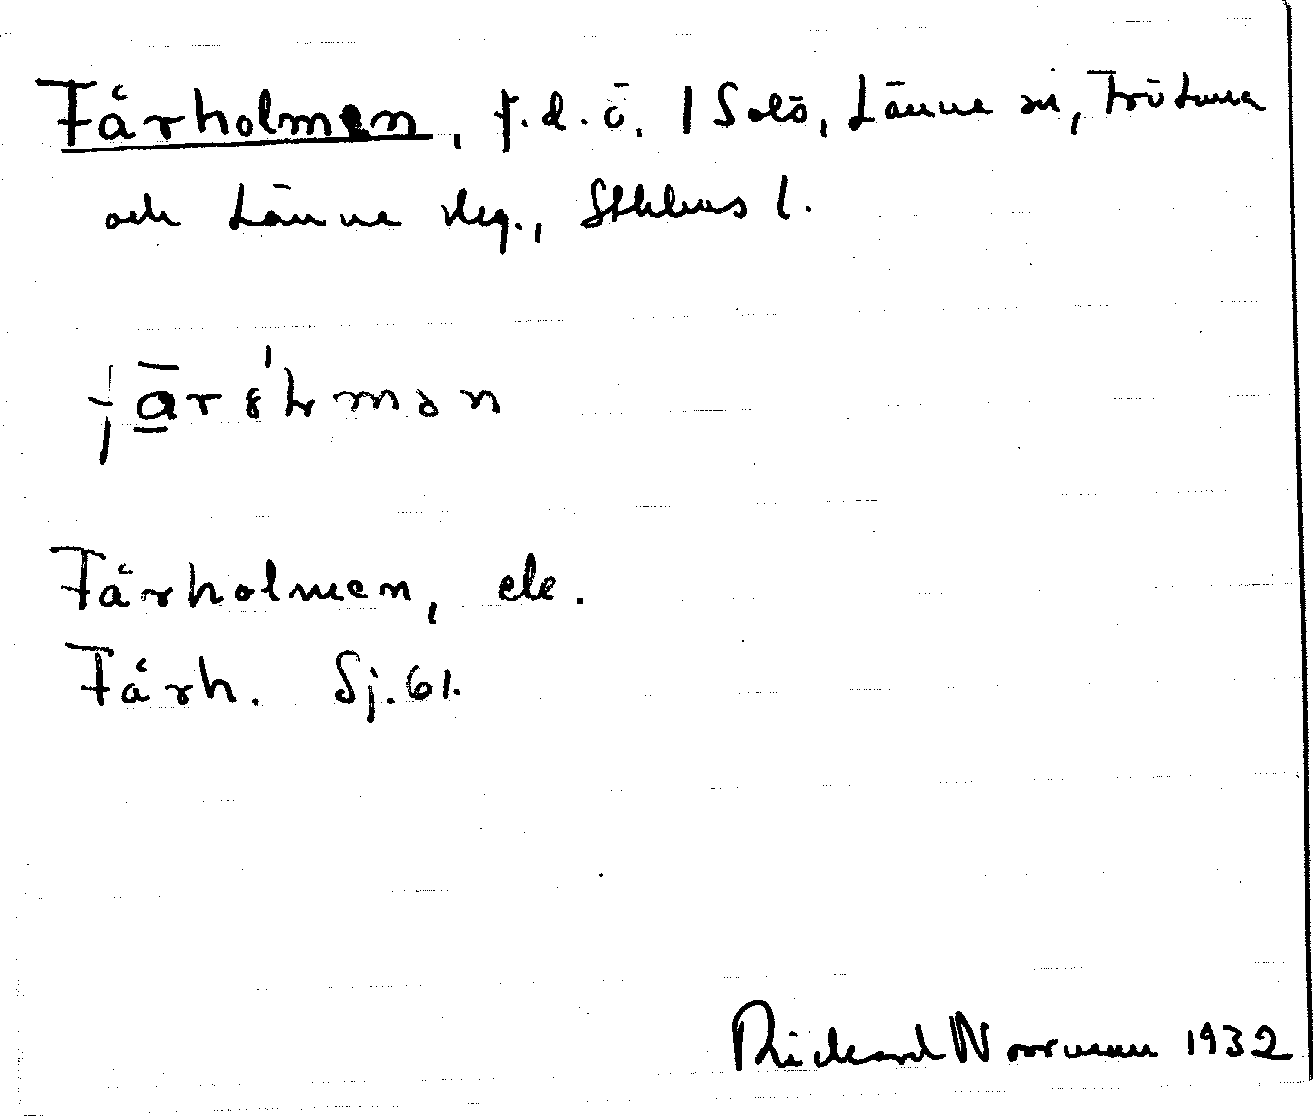 Fårholmen, f.d. ö. / Solö, Länna sn, Frötuna
och Länna skg., Sthlms l.
Fårholmen, ek.
Fårh. Sj. 61.
Rickard Norrman 1932